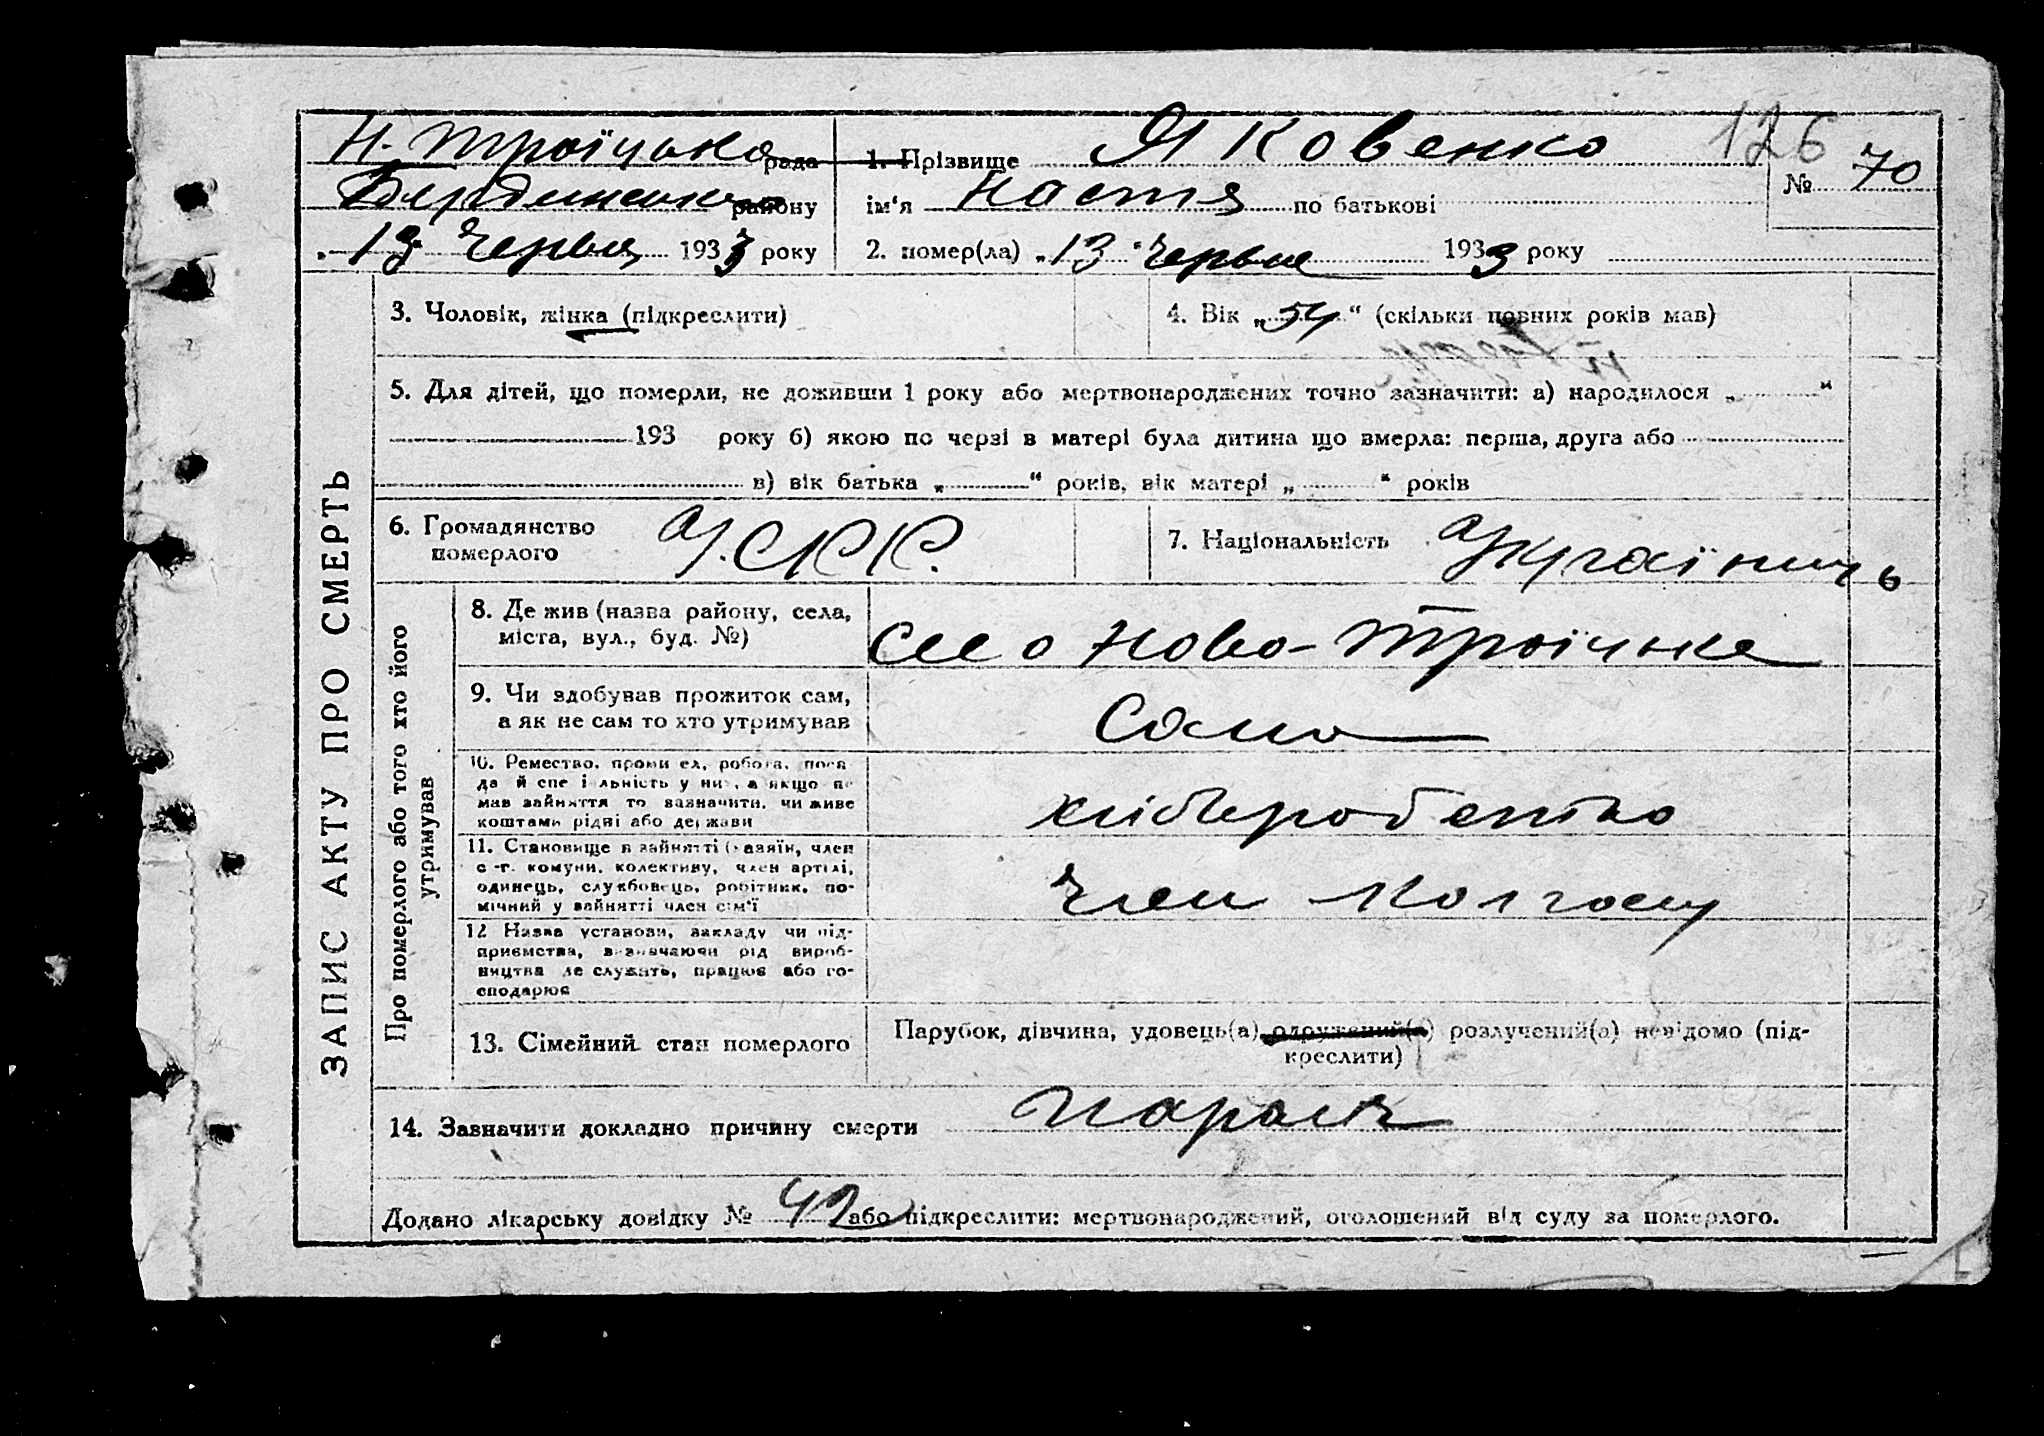 Н. Троїцька рада
Бердянського району
„ 13 червня 1933 року
1. Прізвище Яковенко
126
№ 70
ім'я Настя по батькові
2. помер(ла) „ 13 " червня 1933 року
ЗАПИС АКТУ ПРО СМЕРТЬ
3. Чоловік, жінка (підкреслити)
4. Вік „ 54 " (скільки повних років мав)
5. Для дітей, що померли, не доживши 1 року або мертвонароджених точно зазначити: а) народилося „ "
193 року б) якою по черзі в матері була дитина що вмерла: перша, друга або
в) вік батька „ " років, вік матері „ " років
6. Громадянство
померлого
У.СРР.
7. Національність Українець
Про померлого або того хто його
утримував
8. Де жив (назва району, села,
міста, вул., буд. №)
село Ново-Троїцьке
9. Чи здобував прожиток сам,
а як не сам то хто утримував
Сама
10. Ремество, промисел, робота, поса-
да й спеціяльність у них, а якщо не
мав зайняття то зазначити, чи живе
коштами рідні або держави
хліборобство
11. Становище в зайнятті (хазяїн, член
с.-г. комуни, колективу, член артілі,
одинець, службовець, робітник, по-
мічний у зайнятті член сім'ї
член колгоспу
12 Назва установи, закладу чи під-
приємства, визначаючи рід вироб-
ництва де служить, працює або го-
сподарює
13. Сімейний стан померлого
Парубок, дівчина, удовець(а) одружений(а) розлучений(а) невідомо (під-
креслити)
14. Зазначити докладно причину смерти параліч
Додано лікарську довідку № 42 або підкреслити: мертвонароджений, оголошений від суду за померлого.